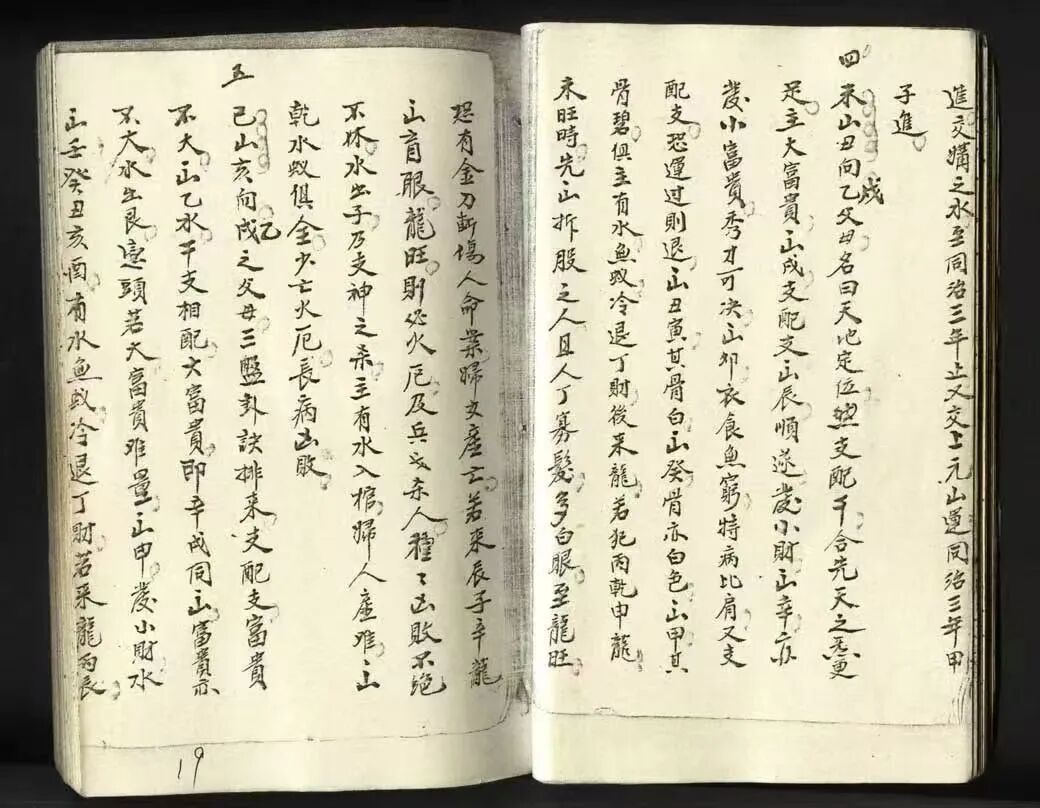 進交媾之水至同治三年止又交上元山運同治三年甲
子進
四
未山丑向乙父母名曰天地定位然支配干合先天之炁更
戍
足主大富貴山戍支配支山辰順遂發小財山辛亦
發小富貴秀才可决山卯衣食魚窮特病比肩又支
配支恐運过則退山丑寅其骨白山癸骨亦白色山甲其
骨碧俱主有水魚蚁冷退丁財後来龍若犯丙乾申龍
未旺時先山拆股之人且人丁寡髮多白眼至龍旺
恐有金刀斬傷人命案婦女産亡若来辰子辛龍
山盲眼龍旺則必火厄及兵戈杀人種々凶敗不绝
不休水出子乃支神之杀主有水入棺婦人産难山
乾水蚁俱全少亡火厄長病凶敗
五
己山亥向戍之父母三盤卦訣排来支配支富貴
乙
不大山乙水干支相配大富貴即辛戍同山富貴亦
不大水出艮寅頭若大富貴难量山甲發小財水
山壬癸丑亥酉有水魚蚁冷退丁財若来龍丙辰
19